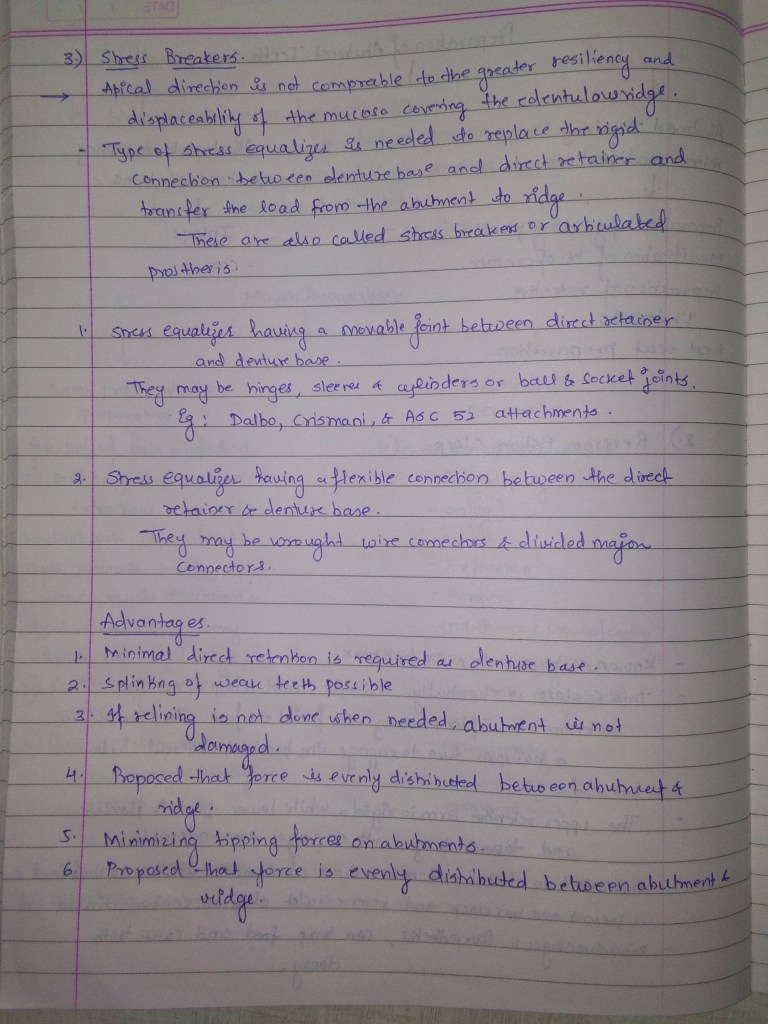 3) Stress Breakers.
→ Apical direction is not comprable to the greater resiliency and
displaceability of the mucosa covering the edentulous ridge.
- Type of stress equalizer is needed to replace the rigid
connection between denture base and direct retainer and
transfer the load from the abutment to ridge.
These are also called stress breakers or articulated
prosthesis.
1. Stress equalizer having a movable joint between direct retainer
and denture base.
They may be hinges, sleeves & cylinders or ball & socket joints.
Eg: Dalbo, Crismani, & ASC 52 attachments.
2. Stress equalizer having a flexible connection between the direct
retainer & denture base.
They may be wrought wire connectors & divided major
connectors.
Advantages.
1. Minimal direct retention is required as denture base.
2. Splinting of weak teeth possible
3. If relining is not done when needed, abutment is not
damaged.
4. Proposed that force is evenly distributed between abutment &
ridge.
5. Minimizing tipping forces on abutments.
6. Proposed that force is evenly distributed between abutment &
ridge.